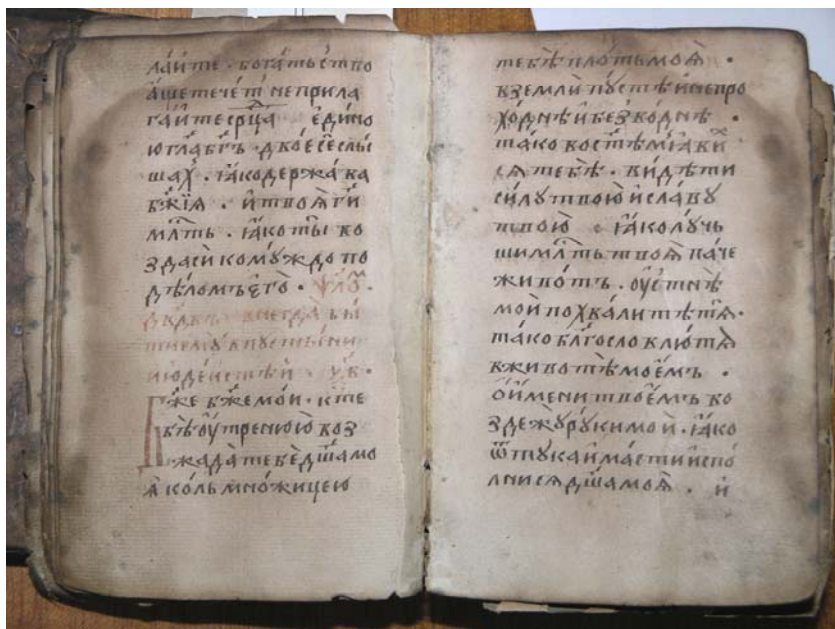 лаи́те · бога́тьство
а́ще тече́т не прила
га́ите ср҃ца · еди́но
ю гл҃а бг҃ъ · двоѐ сѐ слы
шах · ꙗ҆́ко держа́ва
бж҃їѧ · и҆ твоѧ̀ гн҃и
мл҃ть · ꙗ҆́ко ты̀ во
здасѝ кому́ждо по
дѣ́ломъ є҆го̀ · ѱало́ ·
дв҃двъ внегда̀ бы́
ти ему̀ в пусты́ни
июде́истѣи · ѯ҃в ·
Бж҃е бж҃е мо́и · к те
бѣ̀ ᲂу҆́тренюю воз
жада̀ тебѐ дш҃а мо
ѧ̀ ко́ль мно́жицею
тебѣ̀ пло́ть моѧ̀ ·
в землѝ пу́стѣ и непро
хо́днѣ и҆ безво́днѣ ·
та́ко во ст҃ѣ́м ꙗ҆ви́х
сѧ тебѣ̀ · ви́дѣти
си́лу твою̀ и҆ сла́ву
твою̀ · ꙗ҆́ко лу́чь
ши мл҃ть твоѧ̀ па́че
живо́тъ · ᲂу҆стнѣ̀
моѝ похвали́тѣ тѧ̀ ·
та́ко блг҃ословлю́ тѧ
в животѣ̀ мое́мъ ·
ѡ҆ и҆́мени твое́мъ во
здежу̀ ру́ки моѝ · ꙗ҆́ко
ѿ ту́ка и҆ ма́сти и҆спо́
лнисѧ дш҃а моѧ̀ · и҆